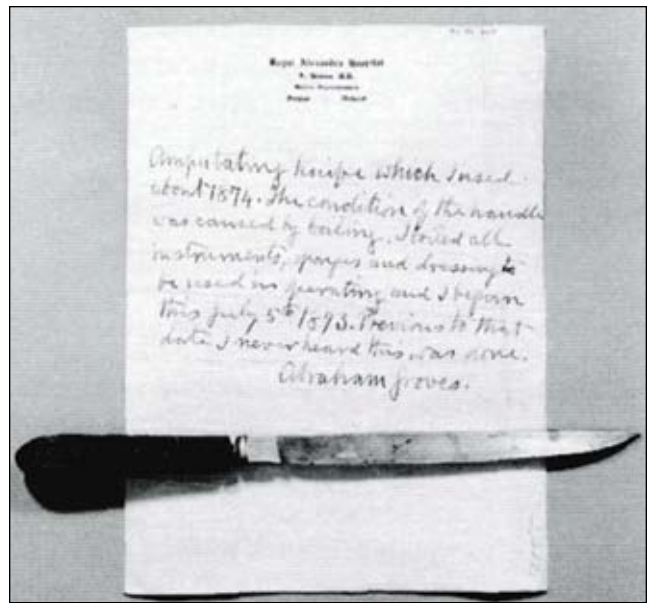 Royal Alexandra Hospital
Amputating knife which I used
about 1874. The condition of the handle
was caused by boiling. I boiled all
instruments, sponges and dressing to
be used in operating and I began
this July 5th 1893. Previous to that
date I never heard this was done.
Abraham Groves.